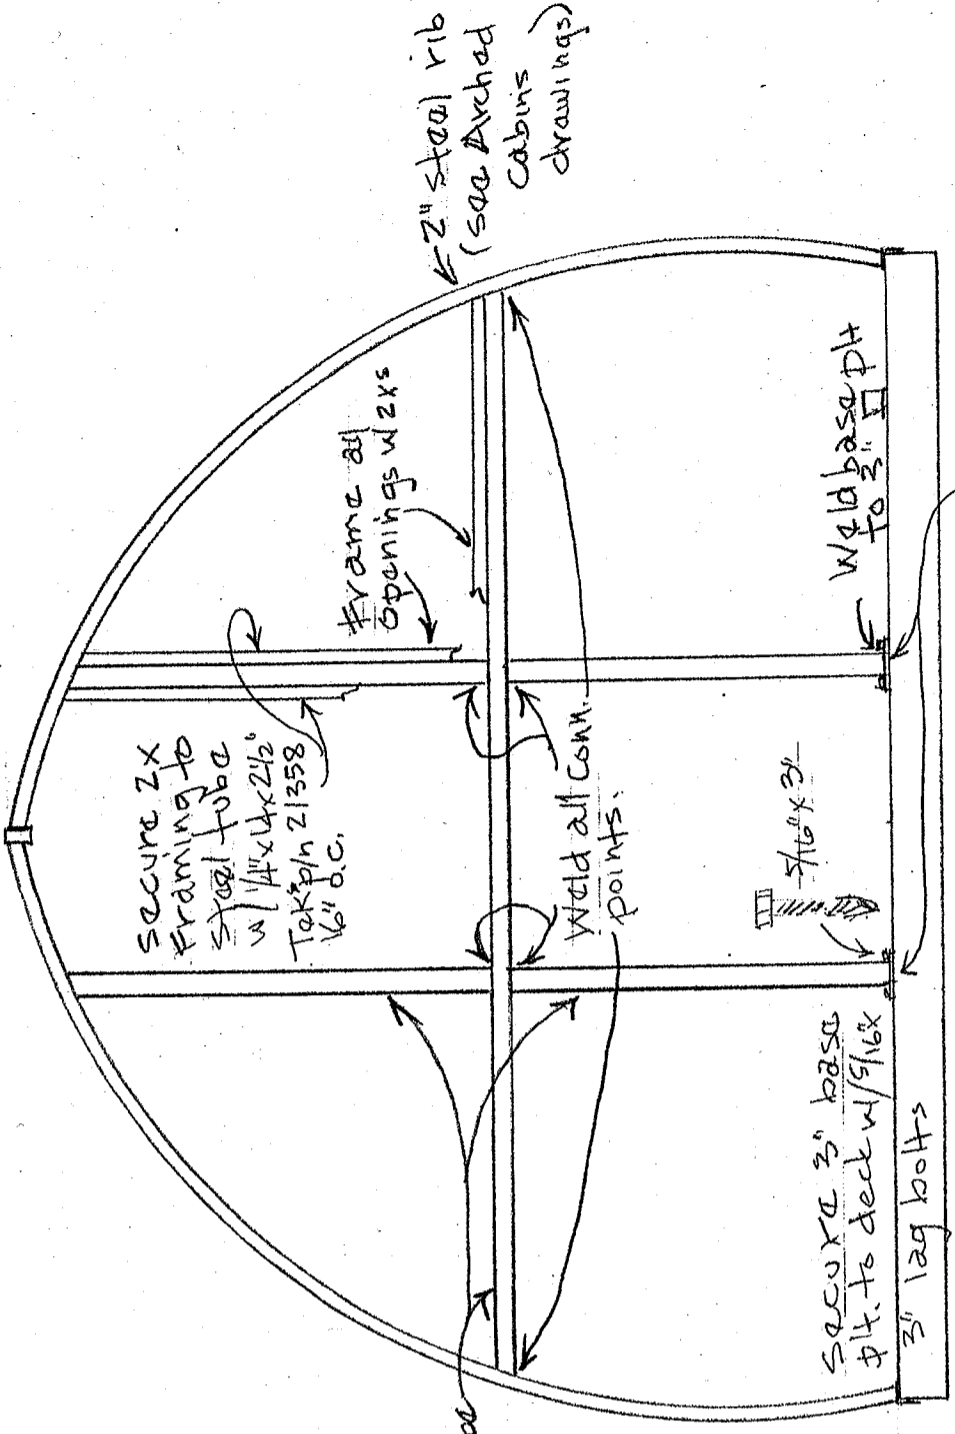 2" steel rib
(see Arched
Cabins
drawings)
Frame all
openings w/ 2xs
Secure 2x
Framing to
Steel tube
w/ 1/4"x14x2 1/2"
Tek's p/n 21358
16" o.c.
Weld all conn.
points.
Weld base plt
to 3" □
5/16" x 3"
Secure 3" base
plt. to deck w/ 5/16" x
3" lag bolts